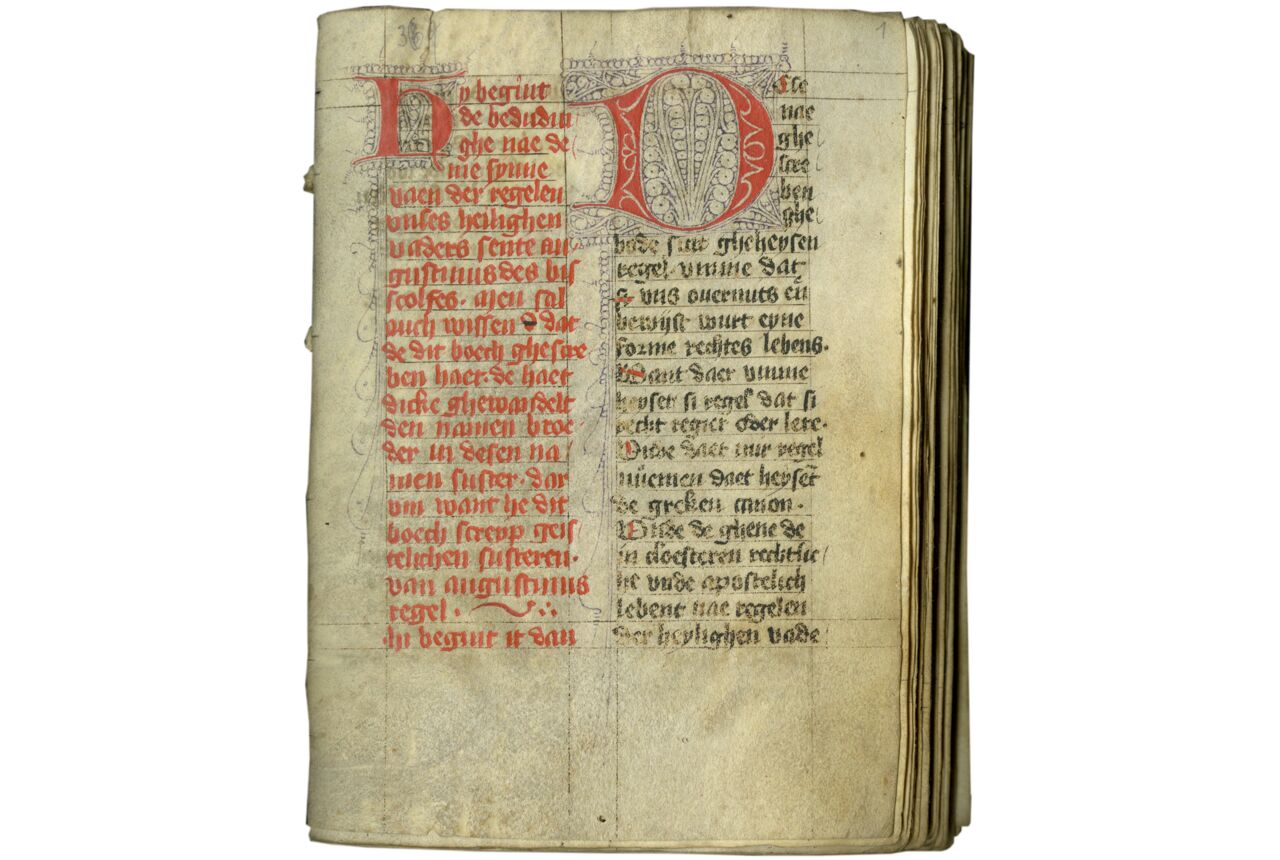 369
1
Hy begint
de bedudin
ghe nae de
me synne
vaen der regelen
vnses heilighen
vaders sente au
gustinus des bis
scolfes. Men sal
auch wissen dat
de dit boech ghescre
ben haet. de haet
dicke ghewandelt
den namen broe
der in desen na
men suster. dar
vm want he dit
boech screyp geis
telichen susteren.
van augustinus
regel.
Hi begint it dan
Dese
nae
ghe
scre
ben
ghe
bode sint gheheysen
regel. vmme dat
si vns ouermits en̄
bewijst wurt eyne
forme rechtes lebens.
Want daer vmme
heyset si regel dat si
recht regiert oder lere.
Vnde daet wir regel
nūemen daet heyset
de greken canon.
Vnde de ghene de
in cloesteren rechtlic
he vnde apostelich
lebent nae regelen
der heylighen vade